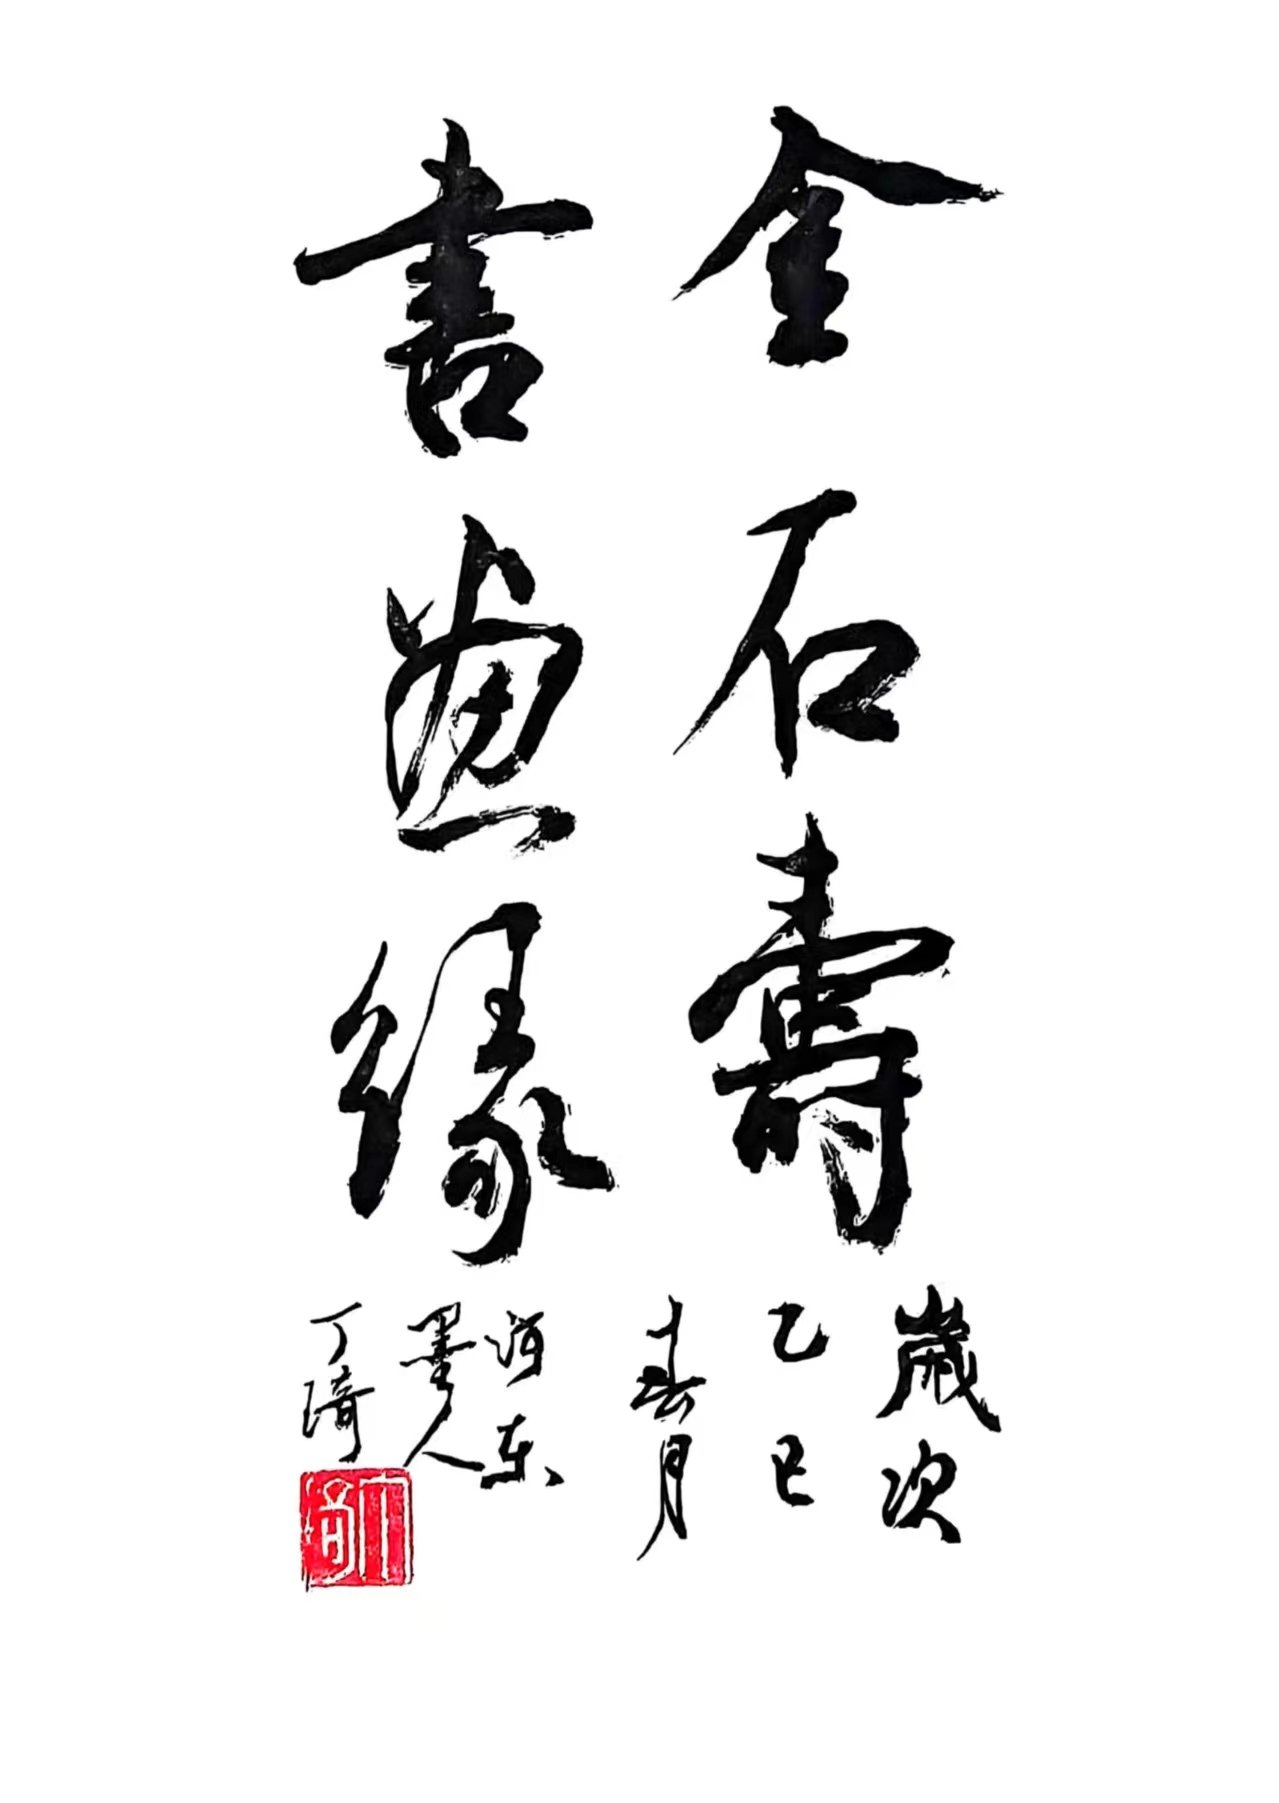 金石壽
書畫緣
歲次
乙巳
春月
河东
墨人
丁琦